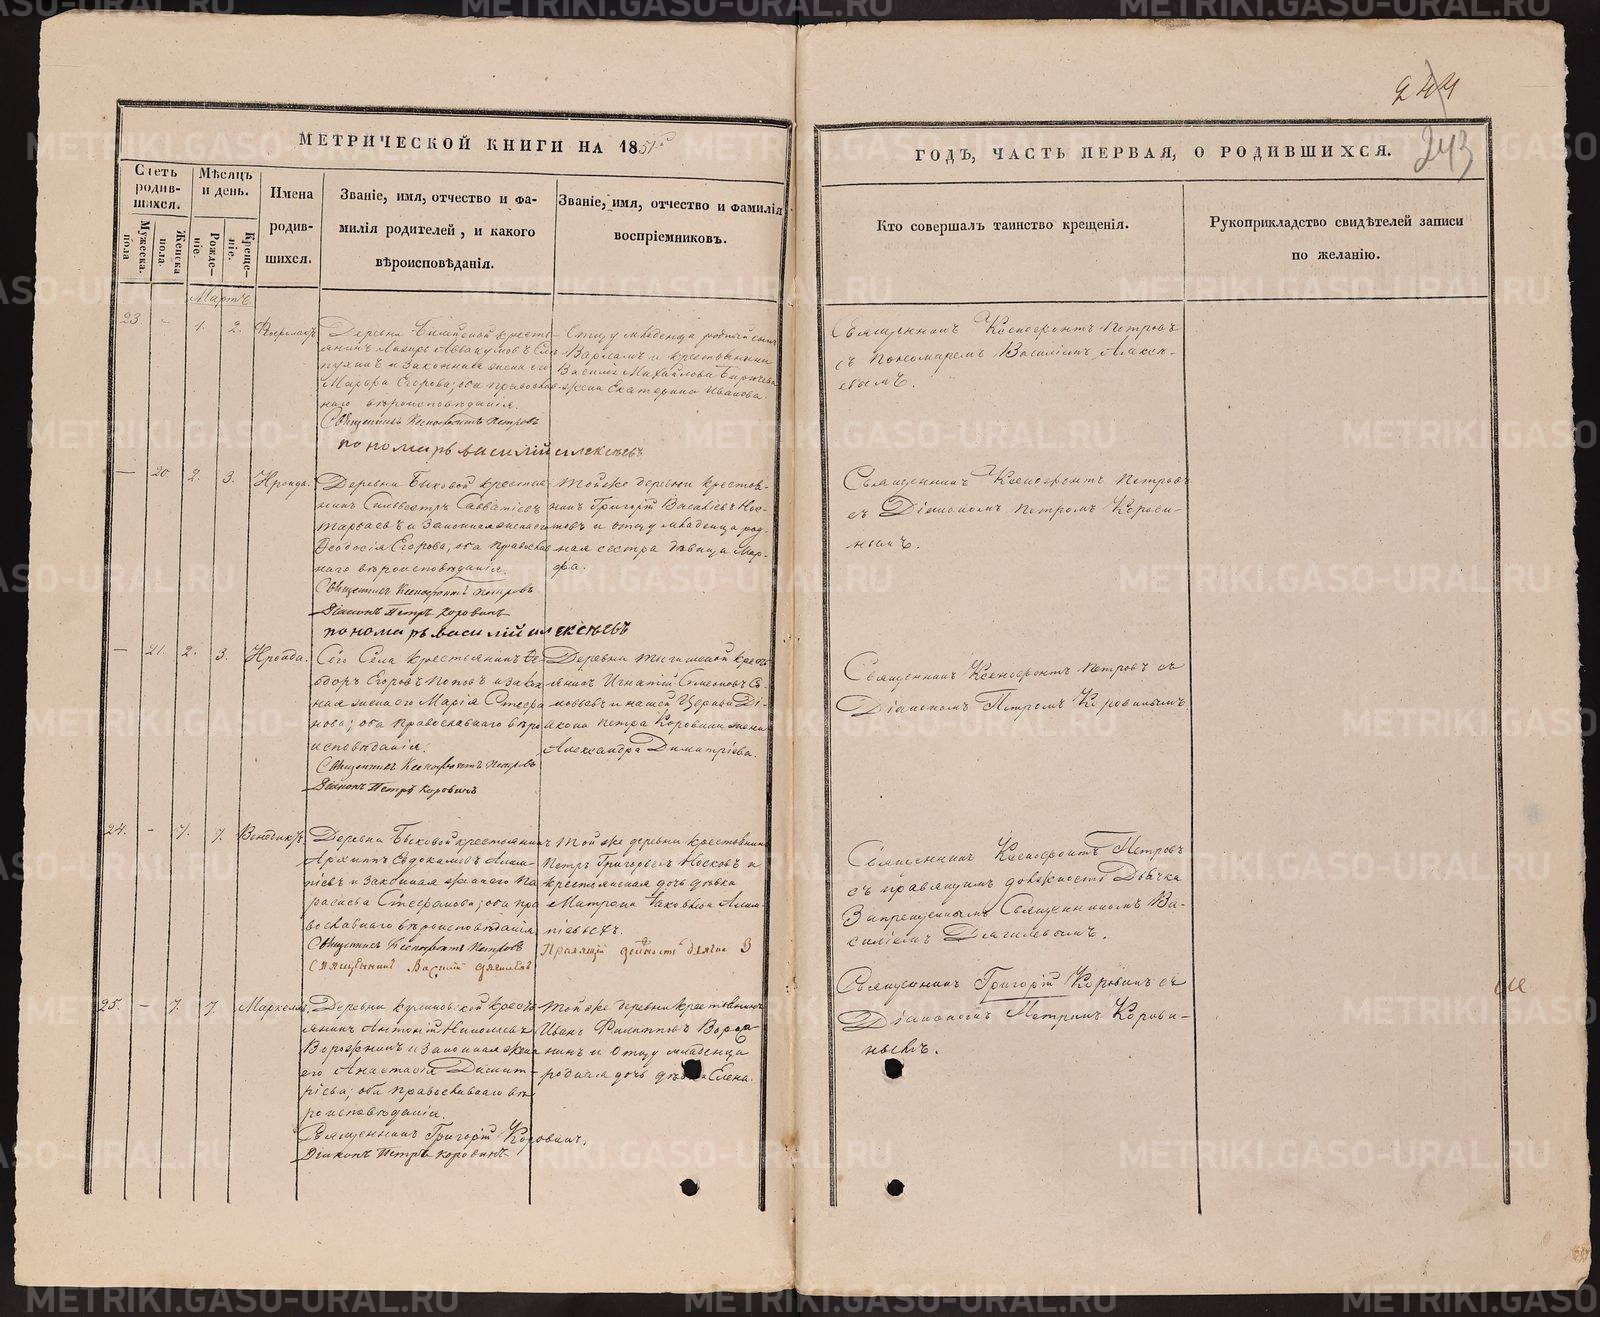 244
243
МЕТРИЧЕСКОЙ КНИГИ НА 1851
ГОДЪ, ЧАСТЬ ПЕРВАЯ, О РОДИВШИХСЯ.
Счетъ родив-
шихся.
Мужеска. пола
Женска пола.
Мѣсяцъ и день.
Рожде-
ніе.
Креще-
ніе.
Имена
родив-
шихся.
Званіе, имя, отчество и фа-
милія родителей, и какого
вѣроисповѣданія.
Званіе, имя, отчество и фамилія
воспріемниковъ.
Кто совершалъ таинство крещенія.
Рукоприкладство свидѣтелей записи
по желанію.
Мартъ
23. - 1. 2.
и законная жена его
Егорова, оба православ-
наго вѣроисповѣданія.
Священникъ Ксенофонтъ Петровъ
пономарь василій алексѣевъ
Отцу младенца родной сынъ
Варламъ и крестьянина
Василія Михайлова
жена Екатерина Иванова
Священникъ Ксенофонтъ Петровъ
съ пономаремъ Василіемъ Алексѣ-
евымъ.
— 20. 2. 3. Ираида.
Деревни Быковой крестья-
нинъ Сильвестръ Савватіевъ
и законная жена его
Ѳеодосія Егорова, оба православ-
наго вѣроисповѣданія.
Священникъ Ксенофонтъ Петровъ
Діаконъ Петръ Коровинъ
пономарь василій алексѣевъ
той же деревни крестья-
нинъ Григорій Васильевъ Нос-
ковъ и отцу младенца род-
ная сестра дѣвица Мар-
фа.
Священникъ Ксенофонтъ Петровъ
съ Діакономъ Петромъ Корови-
нымъ.
— 21. 2. 3. Ираида.
Сего Села крестьянинъ Ѳе-
доръ Егоровъ Поповъ и закон-
ная жена его Марія Стефа-
нова; оба православнаго вѣро-
исповѣданія.
Священникъ Ксенофонтъ Петровъ
Діаконъ Петръ Коровинъ
Деревни
Игнатій Симеоновъ
и нашей Церкви Ді-
акона Петра Коровина жена
Александра Димитріева.
Священникъ Ксенофонтъ Петровъ съ
Діакономъ Петромъ Коровинымъ
24. - 7. 7. Венедиктъ.
Деревни Быковой крестьянинъ
Архиппъ Евдокимовъ Алим-
піевъ и законная жена его Па-
раскева Стефанова; оба пра-
вославнаго вѣроисповѣданія
Священникъ Ксенофонтъ Петровъ
той же деревни крестьянинъ
Петръ Григорьевъ Носковъ и
крестьянская дочь дѣвка
Матрона Яковлева Алим-
піевыхъ.
Правящій должность дьячка З
Священникъ Василій Дягилевъ
Священникъ Ксенофонтъ Петровъ
съ правящимъ должность Дьячка
Запрещеннымъ Священникомъ Ва-
силіемъ Дягилевымъ.
25. - 7. 7. Маркеллъ.
Деревни крестья-
янинъ Антоній Николаевъ
и законная жена
его Анастасія Димит-
ріева; оба православнаго вѣ-
роисповѣданія.
Священникъ Григорій Коровинъ.
Діаконъ Петръ Коровинъ
той же деревни крестьянинъ
Иванъ Филипповъ
и отцу младенца
родная дочь дѣвка Елена.
Священникъ Григорій Коровинъ съ
Діакономъ Петромъ Корови-
нымъ.
METRIKI.GASO-URAL.RU